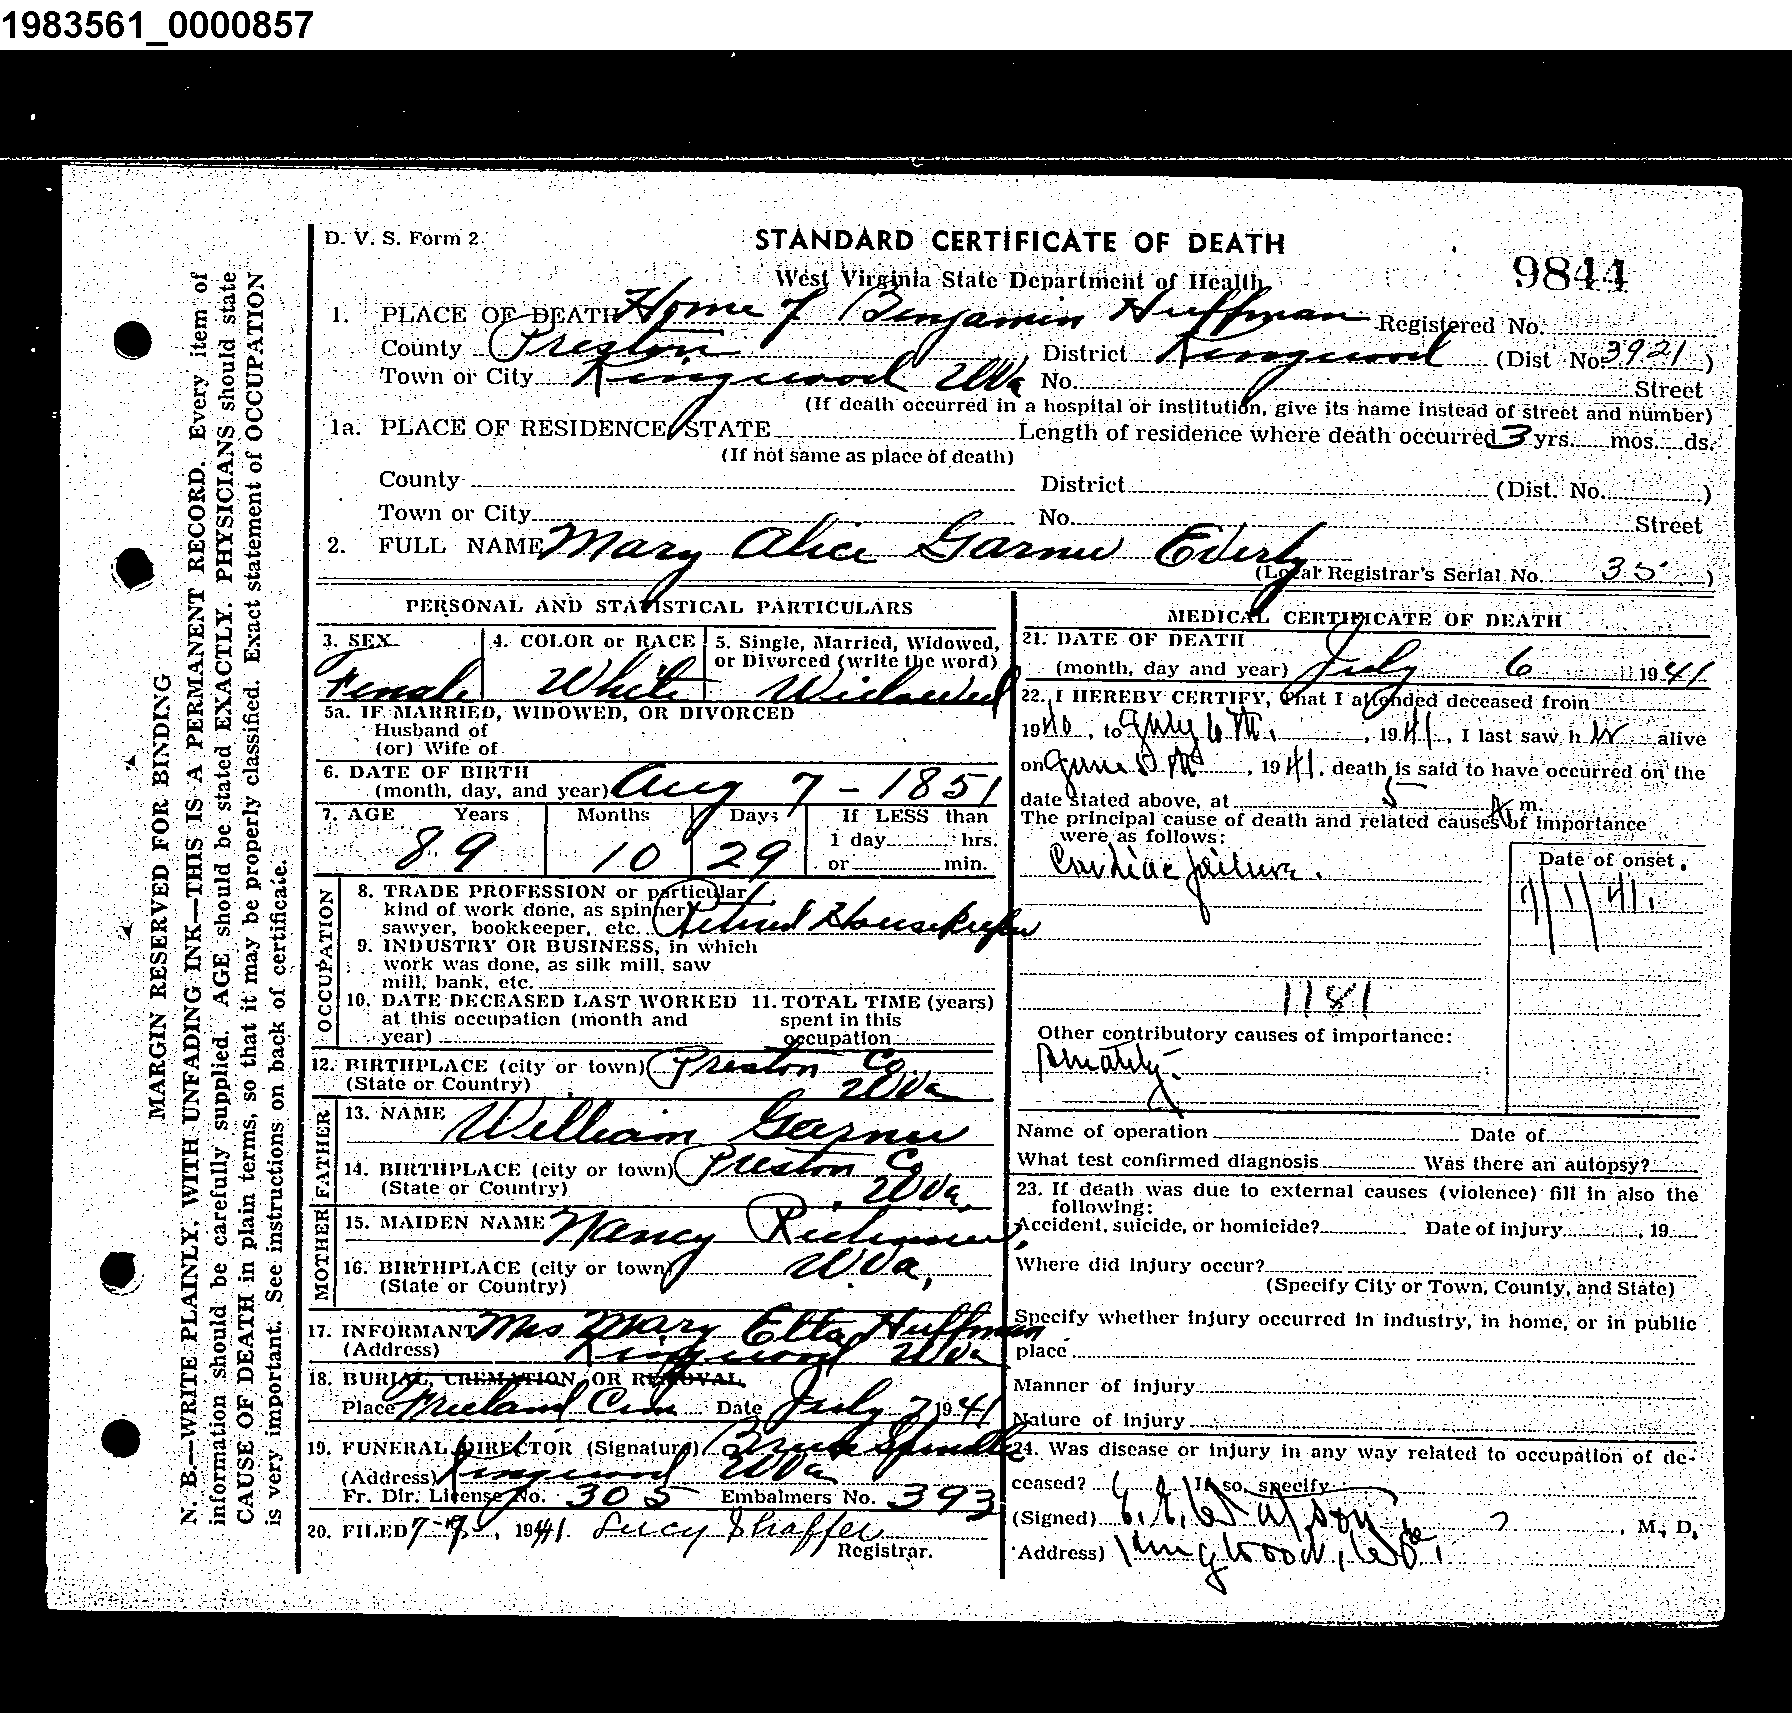 1983561_0000857
D. V. S. Form 2
STANDARD CERTIFICATE OF DEATH
West Virginia State Department of Health
9844
1. PLACE OF DEATH Home of Benjamin Huffman Registered No.
County Preston District Kingwood (Dist No. 3921)
Town or City Kingwood WVa No. Street
(If death occurred in a hospital or institution, give its name instead of street and number)
1a. PLACE OF RESIDENCE, STATE Length of residence where death occurred 3 yrs. mos. ds.
(If not same as place of death)
County District (Dist. No. )
Town or City No. Street
2. FULL NAME Mary Alice Garner Everly
(Local Registrar's Serial No. 35)
PERSONAL AND STATISTICAL PARTICULARS
3. SEX 4. COLOR or RACE 5. Single, Married, Widowed, or Divorced (write the word)
Female White Widowed
5a. IF MARRIED, WIDOWED, OR DIVORCED
Husband of
(or) Wife of
6. DATE OF BIRTH
(month, day, and year) Aug 7 - 1851
7. AGE Years Months Days If LESS than
1 day hrs.
89 10 29 or min.
OCCUPATION
8. TRADE PROFESSION or particular
kind of work done, as spinner
sawyer, bookkeeper, etc. Retired Housekeeper
9. INDUSTRY OR BUSINESS, in which
work was done, as silk mill, saw
mill, bank, etc.
10. DATE DECEASED LAST WORKED 11. TOTAL TIME (years)
at this occupation (month and spent in this
year) occupation
12. BIRTHPLACE (city or town) Preston Co
(State or Country) WVa
FATHER
13. NAME William Garner
14. BIRTHPLACE (city or town) Preston Co
(State or Country) WVa.
MOTHER
15. MAIDEN NAME Nancy
16. BIRTHPLACE (city or town) WVa,
(State or Country)
17. INFORMANT Mrs Mary Etta Huffman
(Address) Kingwood WVa
18. BURIAL, CREMATION, OR REMOVAL
Place Freeland Cem Date July 7 1941
19. FUNERAL DIRECTOR (Signature) Bruce
(Address) Kingwood WVa
Fr. Dir. License No. 305 Embalmers No. 393
20. FILED 7-7, 1941. Lucy Shaffer
Registrar.
MEDICAL CERTIFICATE OF DEATH
21. DATE OF DEATH
(month, day and year) July 6 1941
22. I HEREBY CERTIFY, That I attended deceased from
1940, to July 6th., 1941, I last saw her alive
on June, 1941, death is said to have occurred on the
date stated above, at 5 A m.
The principal cause of death and related causes of importance
were as follows:
Date of onset.
Cardiac failure. 7/1/41.
1181
Other contributory causes of importance:
Senility.
Name of operation Date of
What test confirmed diagnosis Was there an autopsy?
23. If death was due to external causes (violence) fill in also the
following:
Accident, suicide, or homicide? Date of injury , 19
Where did injury occur?
(Specify City or Town, County, and State)
Specify whether injury occurred in industry, in home, or in public
place
Manner of injury
Nature of injury
24. Was disease or injury in any way related to occupation of deceased? If so, specify
(Signed) E. E. Watson, M. D.
Address) Kingwood, W.Va.
MARGIN RESERVED FOR BINDING
N. B.—WRITE PLAINLY, WITH UNFADING INK—THIS IS A PERMANENT RECORD. Every item of
information should be carefully supplied. AGE should be stated EXACTLY. PHYSICIANS should state
CAUSE OF DEATH in plain terms, so that it may be properly classified. Exact statement of OCCUPATION
is very important. See instructions on back of certificate.